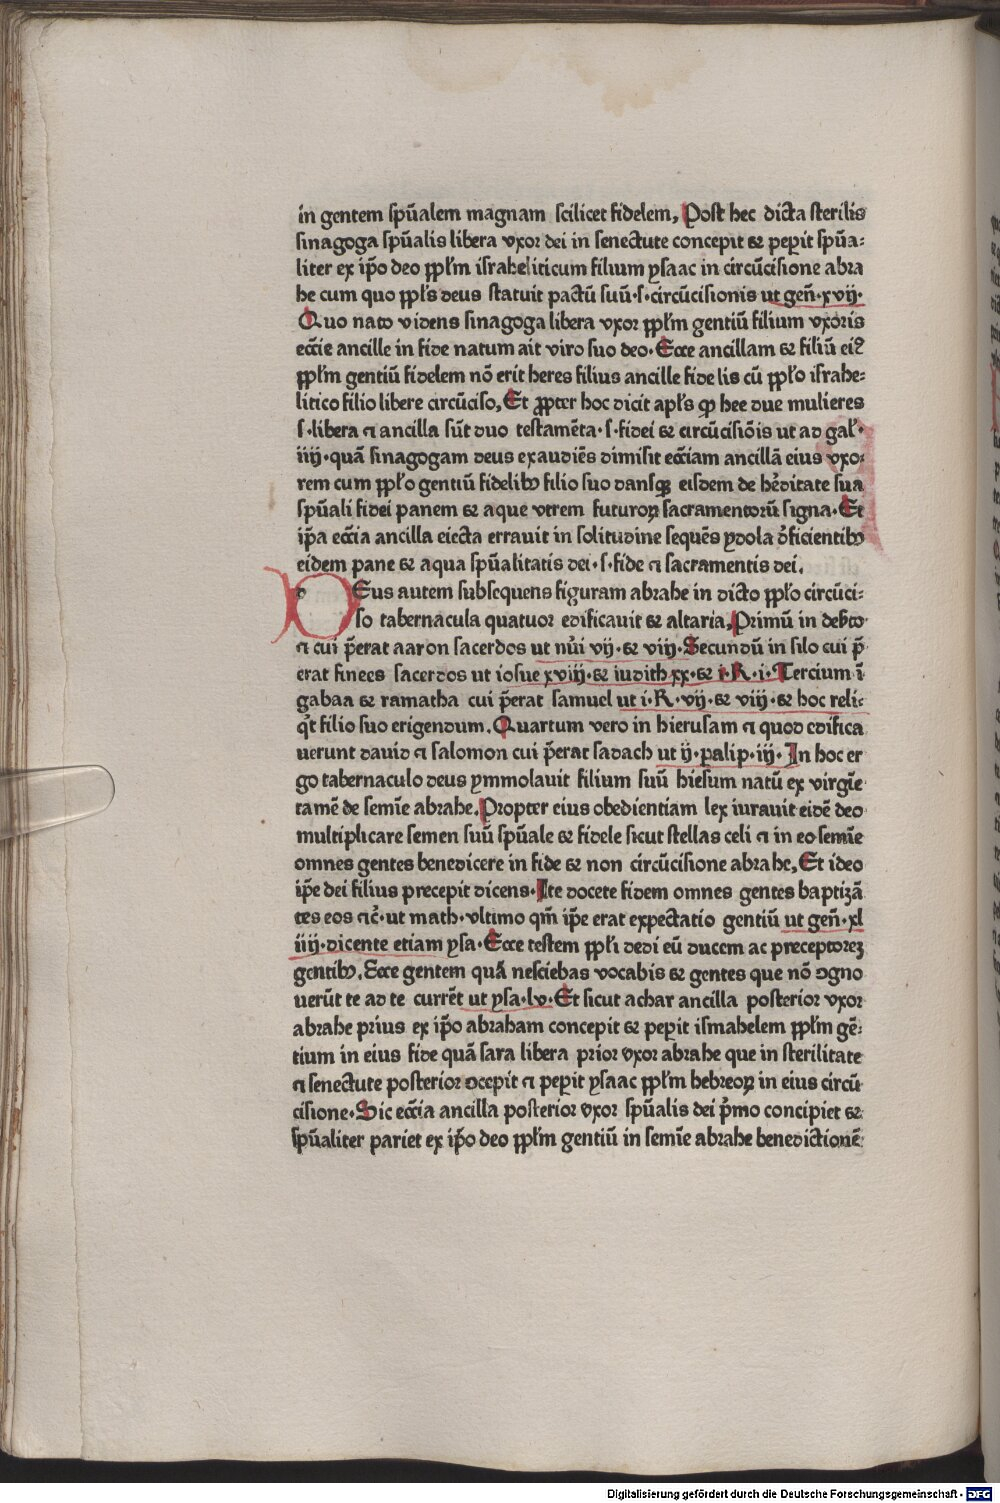 in gentem spūalem magnam scilicet fidelem, Post hec dicta sterilis
sinagoga spūalis libera vxor dei in senectute concepit & peperit spūa⸗
liter ex ip̄o deo pplm̄ israheliticum filium ysaac in circūcisione abra
he cum quo ppls̄ deus statuit pactū suū·s·circūcisionis ut gen̄·xvij·
Quo nato videns sinagoga libera vxor pplm̄ gentiū filium vxoris
eccīe ancille in fide natum ait viro suo deo·Ecce ancillam & filiū eiꝰ
pplm̄ gentiū fidelem nō erit heres filius ancille fidelis cū pplō israhe⸗
litico filio libere circūciso, Et ꝓpter hoc dicit apls̄ ꝙ hee due mulieres
s·libera ⁊ ancilla sūt duo testamēta·s·fidei & circūcisiōis ut ad gal̄·
iiij·quā sinagogam deus exaudiēs dimisit eccīam ancillā eius vxo⸗
rem cum pplō gentiū fidelibꝰ filio suo dansqꝫ eisdem de hēditate sua
spūali fidei panem & aque vtrem futuroꝝ sacramentorū signa·Et
ip̄a eccīa ancilla eiecta errauit in solitudine sequēs ydola dēficientibꝰ
eidem pane & aqua spūalitatis dei·s·fide ⁊ sacramentis dei,
DEus autem subsequens figuram abrahe in dicto pplō circūci⸗
so tabernacula quatuor edificauit & altaria, Primū in deb̄to
⁊ cui p̄erat aaron sacerdos ut nūi vij·& viij·Secundū in silo cui p̄
erat finees sacerdos ut iosue xviij·& iudith xx·& i·R·i·Tercium ī
gabaa & ramatha cui p̄erat samuel ut i·R·vij·& viij·& hoc reli⸗
q̄t filio suo erigendum, Quartum vero in hierusam ⁊ quod edifica
uerunt dauid ⁊ salomon cui p̄erat sadach ut ij·palip·iij·In hoc er
go tabernaculo deus ymmolauit filium suū hiesum natū ex virgīe
tamē de semīe abrahe, Propter eius obedientiam lex iurauit eidē deo
multiplicare semen suū spūale & fidele sicut stellas celi ⁊ in eo semīe
omnes gentes benedicere in fide & non circūcisione abrahe, Et ideo
ip̄e dei filius precepit dicens·Ite docete fidem omnes gentes baptizā
tes eos ⁊c̄·ut math·vltimo qm̄ ip̄e erat expectatio gentiū ut gen̄·xl
iiij·dicente etiam ysa·Ecce testem pplī dedi eū ducem ac preceptoreꝫ
gentibꝰ, Ecce gentem quā nesciebas vocabis & gentes que nō ꝯgno
uerūt te ad te currēt ut ysa·lv·Et sicut achar ancilla posterior vxor
abrahe prius ex ip̄o abraham concepit & peperit ismahelem pplm̄ gē⸗
tium in eius fide quā sara libera prior vxor abrahe que in sterilitate
⁊ senectute posterior ꝯcepit ⁊ peperit ysaac pplm̄ hebreoꝝ in eius circū
cisione·Sic eccīa ancilla posterior vxor spūalis dei p̄mo concipiet &
spūaliter pariet ex ip̄o deo pplm̄ gentiū in semīe abrahe benedictionē⸗
Digitalisierung gefördert durch die Deutsche Forschungsgemeinschaft - DFG